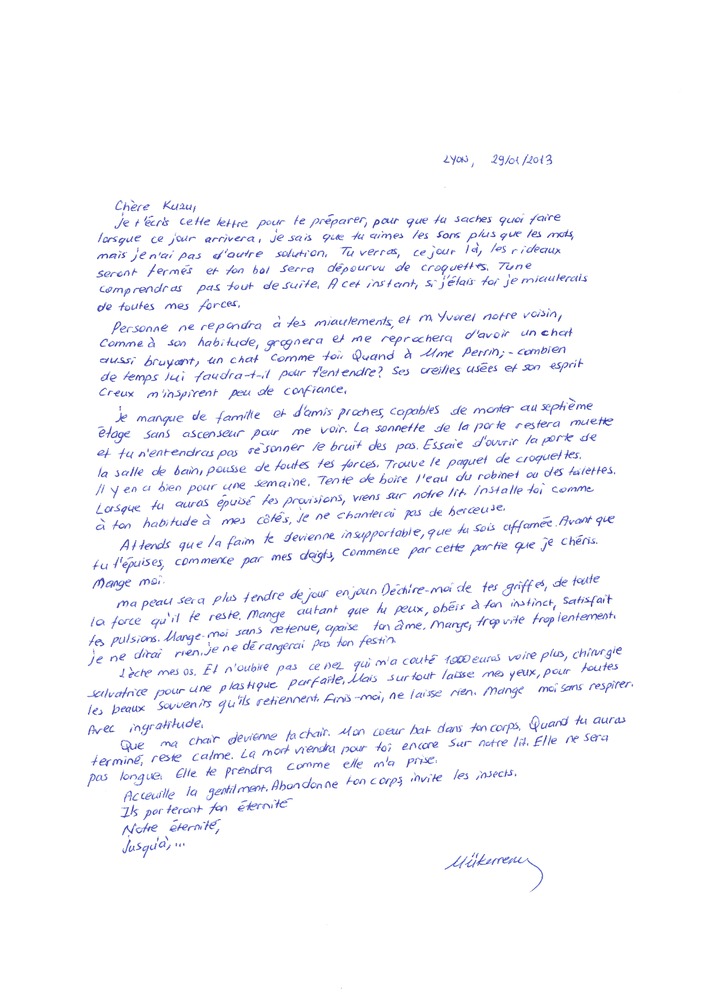 LYON, 29/01/2013
Chère Kuzu,
je t'écris cette lettre pour te préparer, pour que tu saches quoi faire
lorsque ce jour arrivera, je sais que tu aimes les sons plus que les mots,
mais je n'ai pas d'autre solution. Tu verras, ce jour là, les rideaux
seront fermés et ton bol serra dépourvu de croquettes. Tu ne
comprendras pas tout de suite. A cet instant, si j'étais toi je miaulerais
de toutes mes forces.
Personne ne repondra à tes miaulements, et m. Yvorel notre voisin,
comme à son habitude, grognera et me reprochera d'avoir un chat
aussi bruyant, un chat comme toi. Quand à Mme Perrin, - combien
de temps lui faudra-t-il pour t'entendre? Ses oreilles usées et son esprit
creux m'inspirent peu de confiance.
Je manque de famille et d'amis proches, capables de monter au septième
étage sans ascenseur pour me voir. La sonnette de la porte restera muette
et tu n'entendras pas résonner le bruit des pas. Essaie d'ouvrir la porte de
la salle de bain, pousse de toutes tes forces. Trouve le paquet de croquettes.
Il y en a bien pour une semaine. Tente de boire l'eau du robinet ou des toilettes.
Lorsque tu auras épuisé tes provisions, viens sur notre lit. Installe toi comme
à ton habitude à mes côtés, je ne chanterai pas de berceuse.
Attends que la faim te devienne insupportable, que tu sois affamée. Avant que
tu t'épuises, commence par mes doigts, commence par cette partie que je chéris.
Mange moi.
ma peau sera plus tendre de jour en jour. Déchire-moi de tes griffes, de toute
la force qu'il te reste. Mange autant que tu peux, obéis à ton instinct, satisfait
tes pulsions. Mange-moi sans retenue, apaise ton âme. Mange, trop vite trop lentement.
je ne dirai rien. je ne dérangerai pas ton festin.
Lèche mes os. Et n'oublie pas ce nez qui m'a couté 1000 euros voire plus, chirurgie
salvatrice pour une plastique parfaite. Mais surtout laisse mes yeux, pour toutes
les beaux souvenirs qu'ils retiennent. Finis-moi, ne laisse rien. Mange moi sans respirer.
Avec ingratitude.
Que ma chair devienne ta chair. Mon coeur bat dans ton corps. Quand tu auras
terminé, reste calme. La mort viendra pour toi encore sur notre lit. Elle ne sera
pas longue. Elle te prendra comme elle m'a prise.
Acceuille la gentilment. Abandonne ton corps, invite les insects.
Ils porteront ton éternité
Notre éternité,
Jusqu'à, ...
Mükerrem